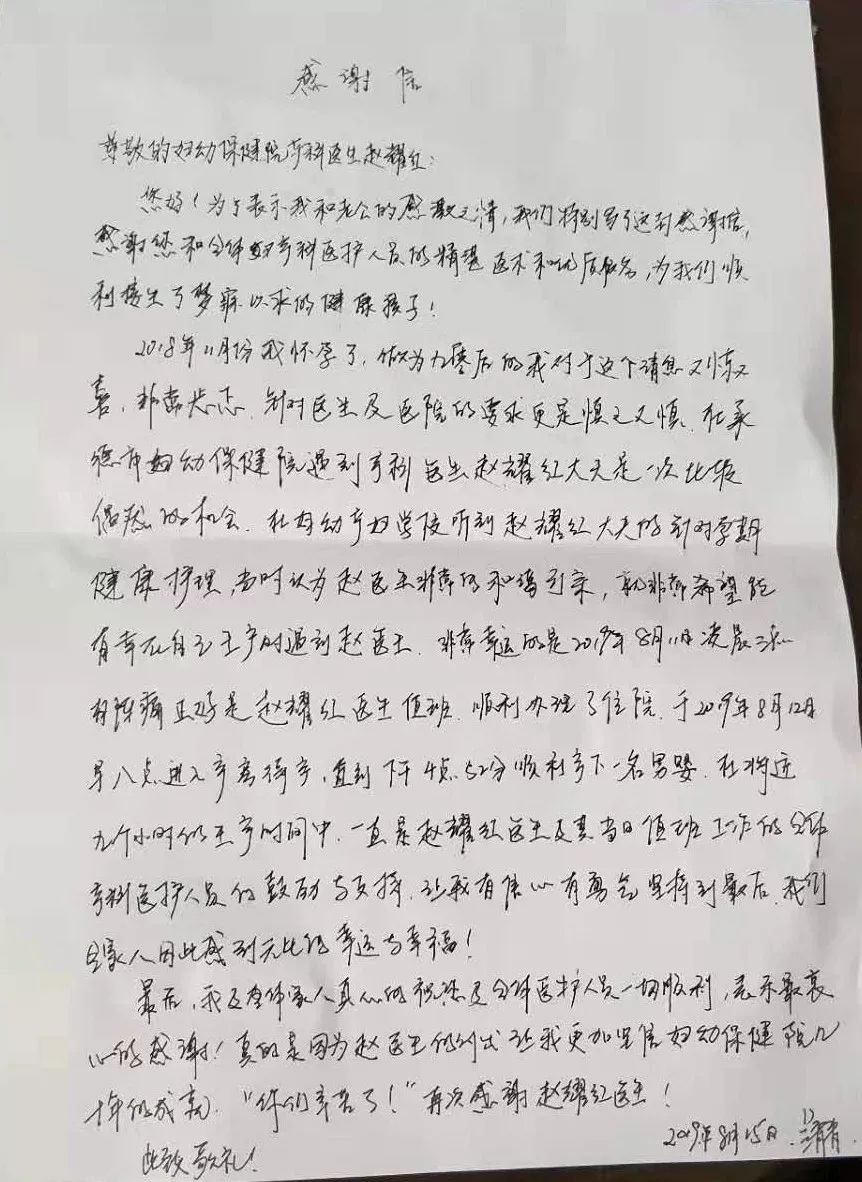 感谢信
尊敬的妇幼保健院产科医生赵耀红：
您好！为了表示我和老公的感激之情，我们特别写了这封感谢信，
感谢您和全体妇产科医护人员的精湛医术和优质服务，为我们顺
利接生了梦寐以求的健康孩子！
2018年11月份我怀孕了，做为九零后的我对于这个消息又惊又
喜，非常忐忑，针对医生及医院的要求更是慎之又慎，在承
德市妇幼保健院遇到产科医生赵耀红大夫是一次比较
偶然的机会，在妇幼孕妇学校听到赵耀红大夫的针对孕期
健康护理，当时认为赵医生非常的和蔼可亲，就非常希望能
有幸在自己生产时遇到赵医生，非常幸运的是2019年8月11日凌晨三点
有阵痛正好是赵耀红医生值班，顺利办理了住院，于2019年8月12日
早八点进入产房待产，直到下午4点52分顺利产下一名男婴，在将近
九个小时的生产时间中，一直是赵耀红医生及其当日值班工作的全体
产科医护人员的鼓励与支持，让我有信心有勇气坚持到最后，我们
全家人因此感到无比的幸运与幸福！
最后，我及全体家人真心的祝您及全体医护人员一切顺利，表示最衷
心的感谢！真的是因为赵医生的付出让我更加坚信妇幼保健院几
十年的成就，“你们辛苦了！”再次感谢赵耀红医生！
此致敬礼！
2019年8月15日